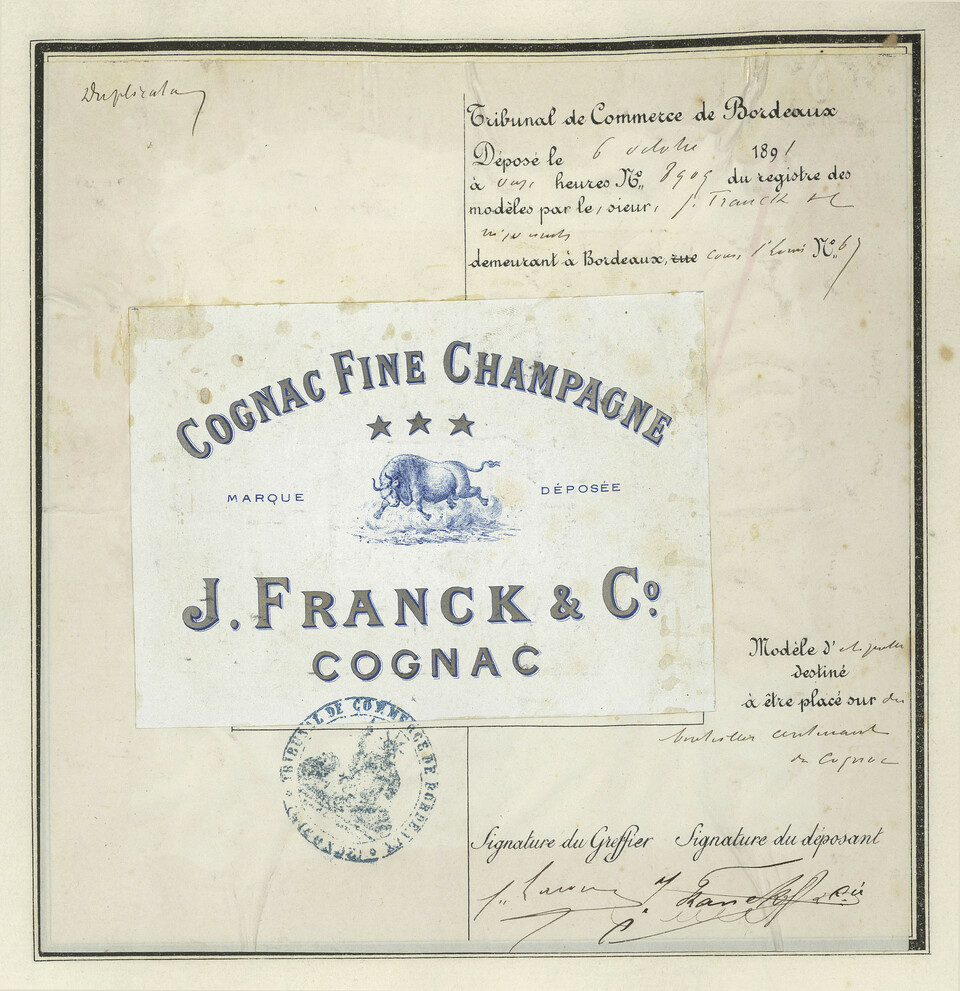 Duplicata
Tribunal de Commerce de Bordeaux
Déposé le 6 octobre 1891
à onze heures No. 8909 du registre des
modèles par le, sieur, J. Franck et
demeurant à Bordeaux, rue cours No. 67
COGNAC FINE CHAMPAGNE
MARQUE DÉPOSÉE
J. FRANCK & Co.
COGNAC
Modèle d'étiquette
destiné
à être placé sur des
bouteilles contenant
du Cognac
TRIBUNAL DE COMMERCE DE BORDEAUX
Signature du Greffier Signature du déposant
Franck